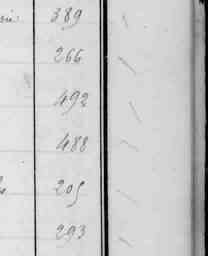 389
266
492
488
205
293